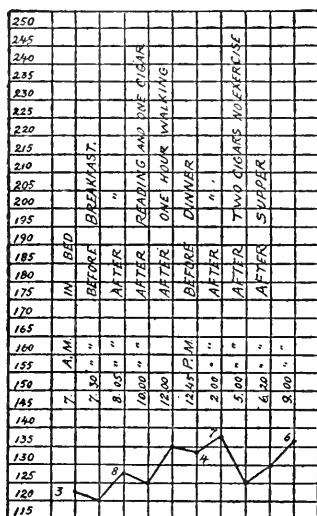 250
245
240
235
230
225
220
215
210
205
200
195
190
185
180
175
170
165
160
155
150
145
140
135
130
125
120
115
7. A.M. IN BED
7.30 " " BEFORE BREAKFAST.
8.05 " " AFTER "
10.00 " " AFTER READING AND ONE CIGAR
AFTER ONE HOUR WALKING
12.15 P.M. BEFORE DINNER
2.00 " " AFTER "
5.00 " " AFTER TWO CIGARS NO EXERCISE
6.20 " " AFTER SUPPER
9.00 " "
3
8
4
7
6